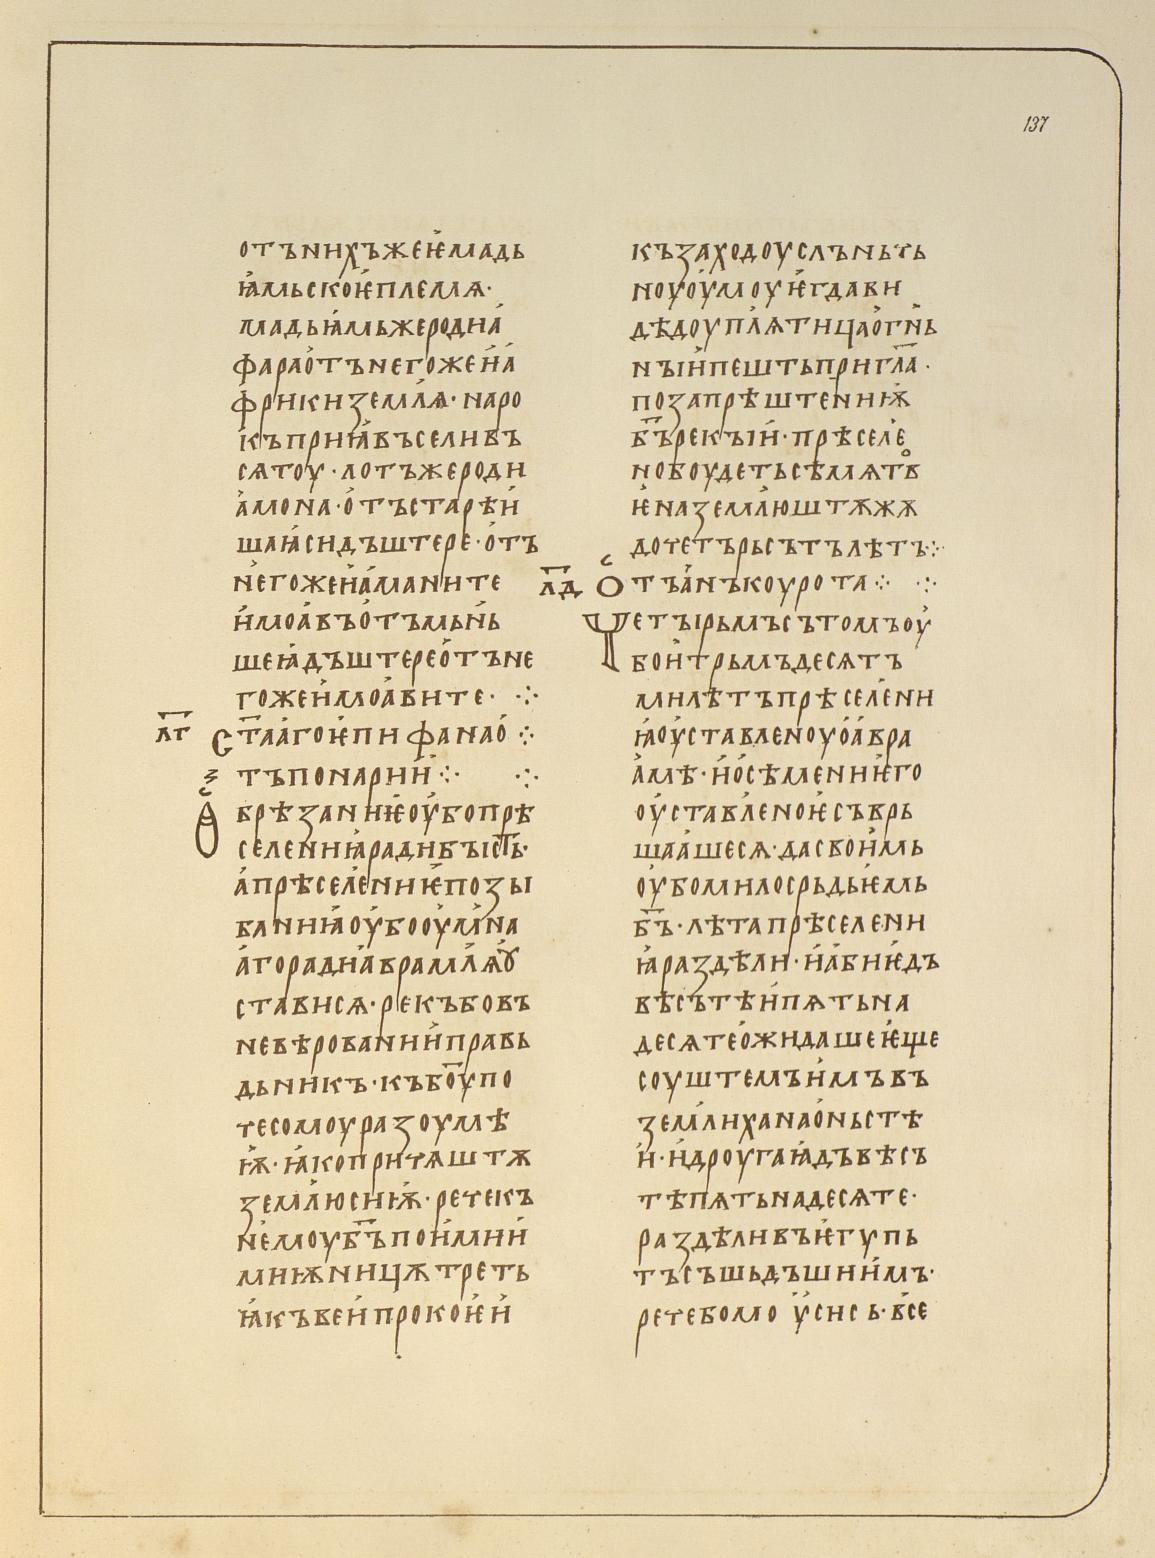 137
отънихъжеѥмадь
ꙗмьскоѥплемѧ·
мадьꙗмьжеродиа
фараотънегожеиа
фрикиземлѧ· наро
къприꙗвъселивъ
сѧтоу·лотъжероди
амона·отъстарѣи
шаꙗсидъштере·отъ
негожеиаманите
имоавъотъмьнь
шеꙗдъштереотъне
гожеимоавите· ⁘
л҃г
ст҃ааагоѥпифанао ⁘
тъпонарии⁘ ⁘
обрѣзаниѥоубопрѣ
селениꙗрадибысть·
апрѣселениѥпозы
ваниꙗоубооумна
агорадиаврамлѧꙋ
стависѧ·рекъбовъ
невѣрованииправь
дьникъ·къбо҃упо
чесомоуразоумѣ
ѭ·ꙗкопричѧштѫ
землюсиѭ·речекъ
немоуб҃ъпоимии
миѭницѫтреть
ꙗкъвеипрокоѥи
къзаходоуслъньчь
ноуоумоуѥгдави
дѣдоуплѧтицаогнь
нъіипештьпригл҃а·
позапрѣштениѭ
б҃ърекъіи·прѣселе
нобоудетьсѣмѧтв
ѥназемлюштѫжѫ
дочетърьсътълѣтъ⁘
л҃д
отъанъкоурота⁘ ⁘
Четъірьмъсътомъоу
боитрьмъдесѧтъ
милѣтъпрѣселени
ꙗоуставленоуоавра
амѣ·иосѣмениѥго
оуставленоѥсъврь
шаашесѧ·дасвоимь
оубомилосрьдьѥмь
б҃ъ·лѣтапрѣселени
ꙗраздѣли·иабиѥдъ
вѣсътѣипѧтьна
десѧтеожидашеѥще
соуштемъимъвъ
землиханаоньстѣ
и·идроугаꙗдъвѣсъ
тѣпѧтьнадесѧте·
раздѣливъѥгупь
тъсъшьдъшиимъ·
речебомо ѵсисъ·все